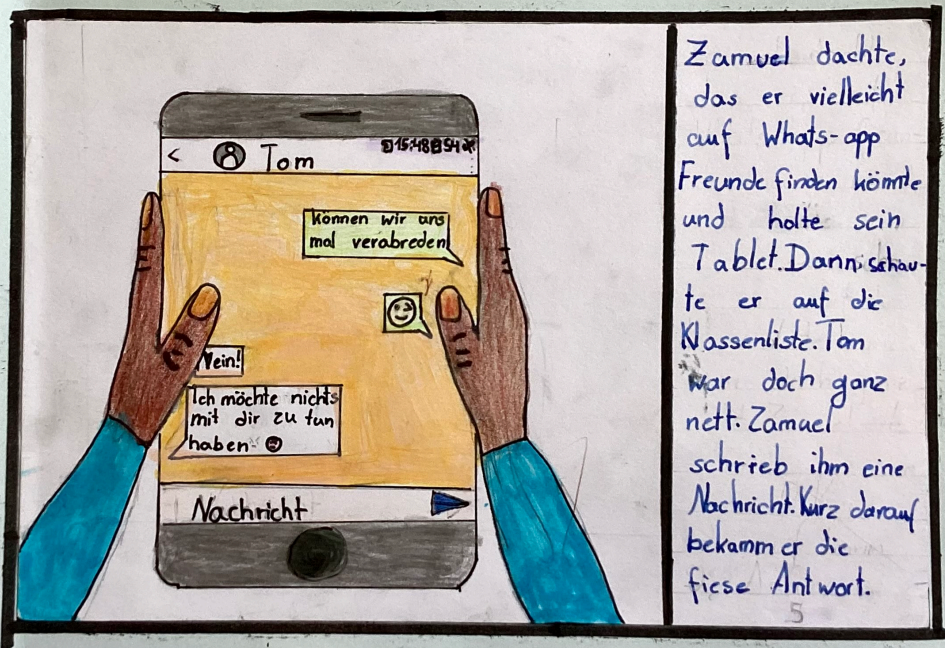 < Tom 15:48 54
können wir uns
mal verabreden
Nein!
Ich möchte nichts
mit dir zu tun
haben.
Nachricht
Zamuel dachte,
das er vielleicht
auf Whats-app
Freunde finden könnte
und holte sein
Tablet. Dann schau-
te er auf die
Klassenliste. Tom
war doch ganz
nett. Zamuel
schrieb ihm eine
Nachricht. Kurz darauf
bekamm er die
fiese Antwort.
5